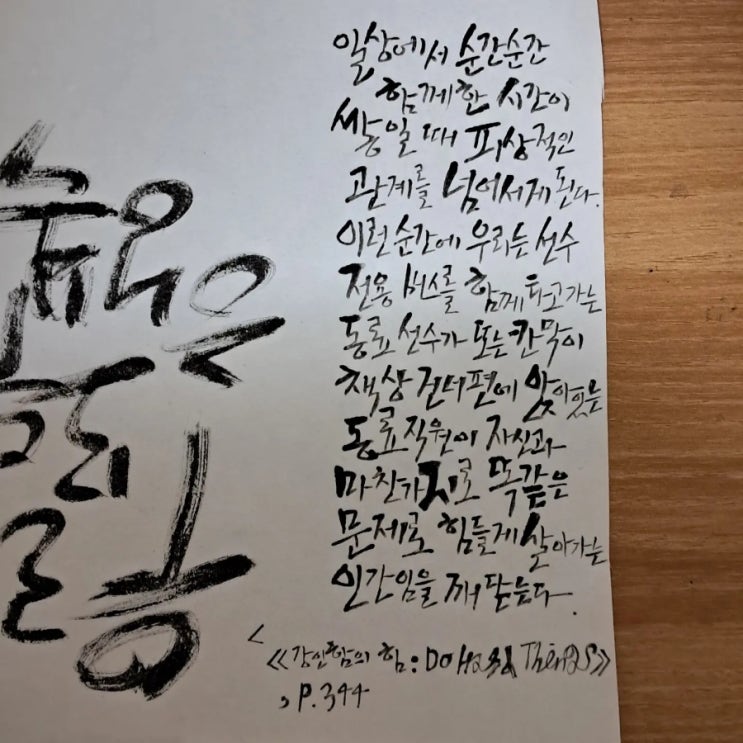 일상에서 순간순간
함께한 시간이
쌓일 때 피상적인
관계를 넘어서게 된다.
이런 순간에 우리는 선수
전용 버스를 함께 타고가는
동료 선수가 또는 칸막이
책상 건너편에 앉아있는
동료직원이 자신과
마찬가지로 똑같은
문제로 힘들게 살아가는
인간임을 깨닫는다.
<<강인함의 힘: Do Hard Things>>
, P.344